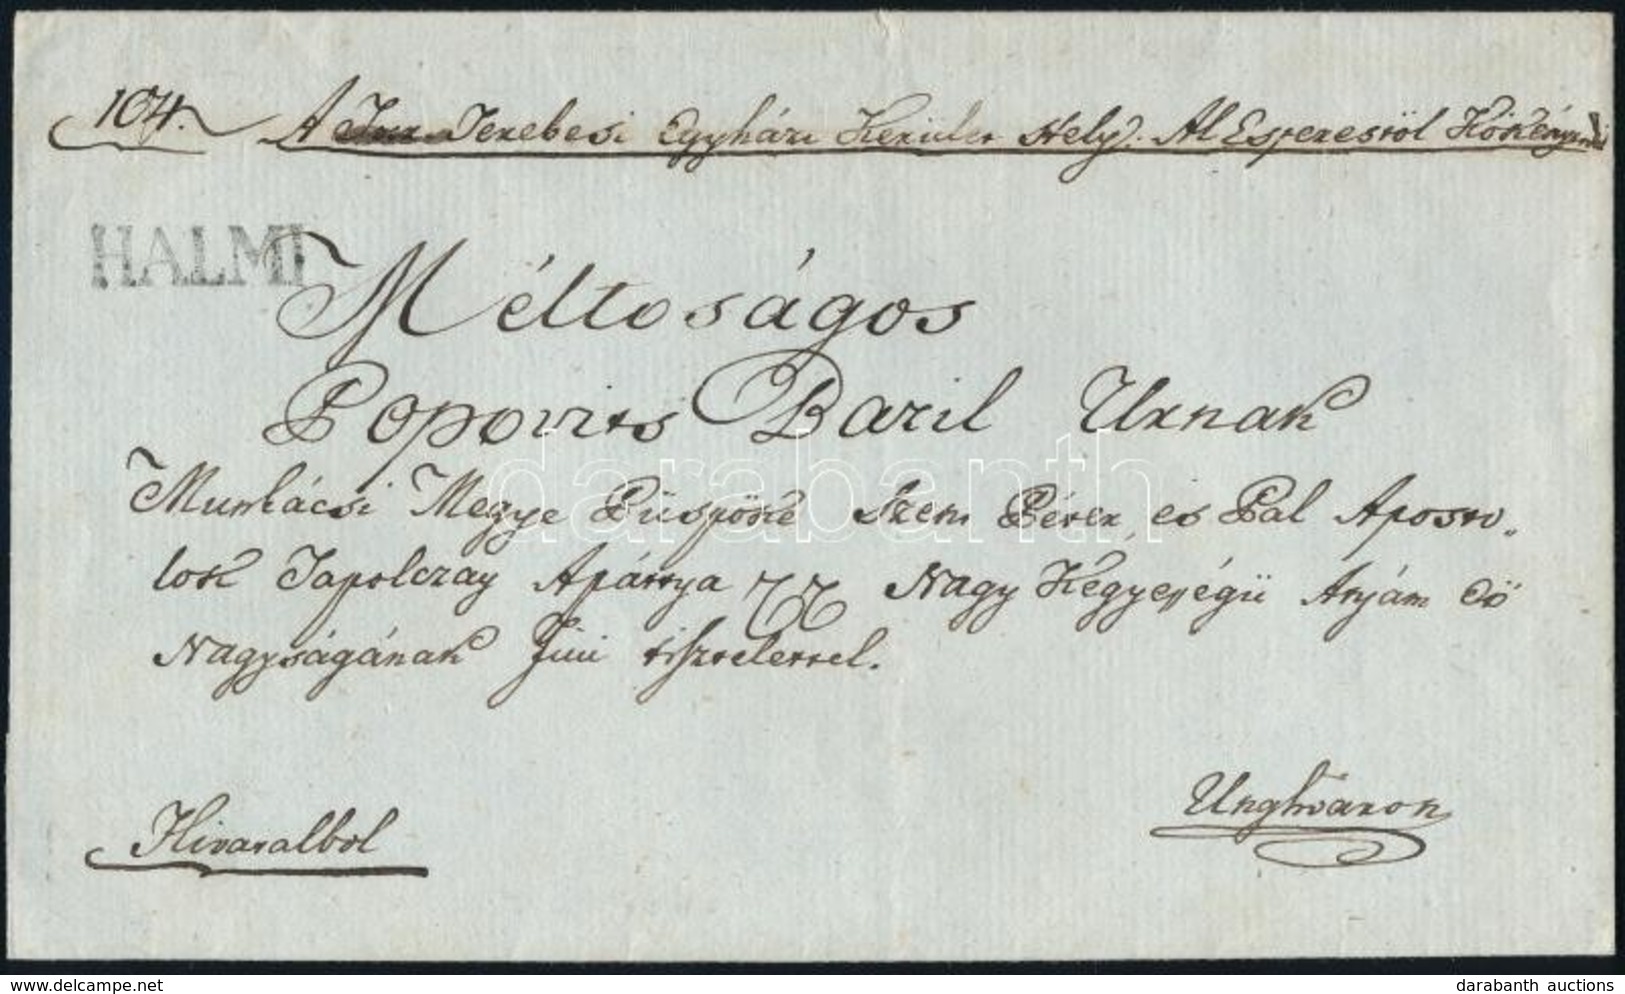 104. A Tur Terebesi Egyházi Kerület Hely. Al Esperestöl Kökényesd
HALMI
Méltoságos
Popovits Bazil Urnak
Munkácsi Megye Püspöké Szent Péter, és Pál Aposto„
lok Tapolczay Apáttya
Nagy Kégyességü Atyám Eö
Nagyságának fiui tisztelettel.
Hivatalbol
Unghvaron
darabanth
delcampe.net
darabanth auctions